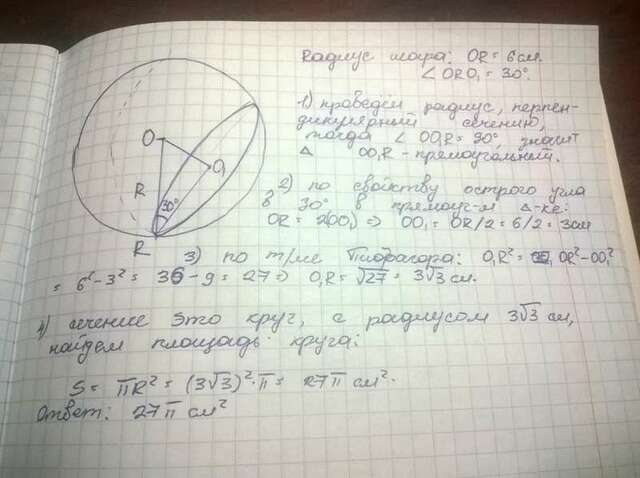 Радиус шара: OR = 6 см.
∠ORO₁ = 30°
1) проведём радиус, перпен-
дикулярный сечению,
тогда ∠OO₁R = 90°, значит
△ OO₁R - прямоугольный.
2) по свойству острого угла
в 30° в прямоуг-м △-ке:
OR = 2OO₁ => OO₁ = OR/2 = 6/2 = 3см
3) по т/ме Пифагора: O₁R² = OR² - OO₁²
= 6² - 3² = 36 - 9 = 27 => O₁R = √27 = 3√3 см.
4) сечение это круг, с радиусом 3√3 см,
найдем площадь круга:
S = πR² = (3√3)² · π = 27π см².
Ответ: 27π см²
O
O₁
R
30°
R